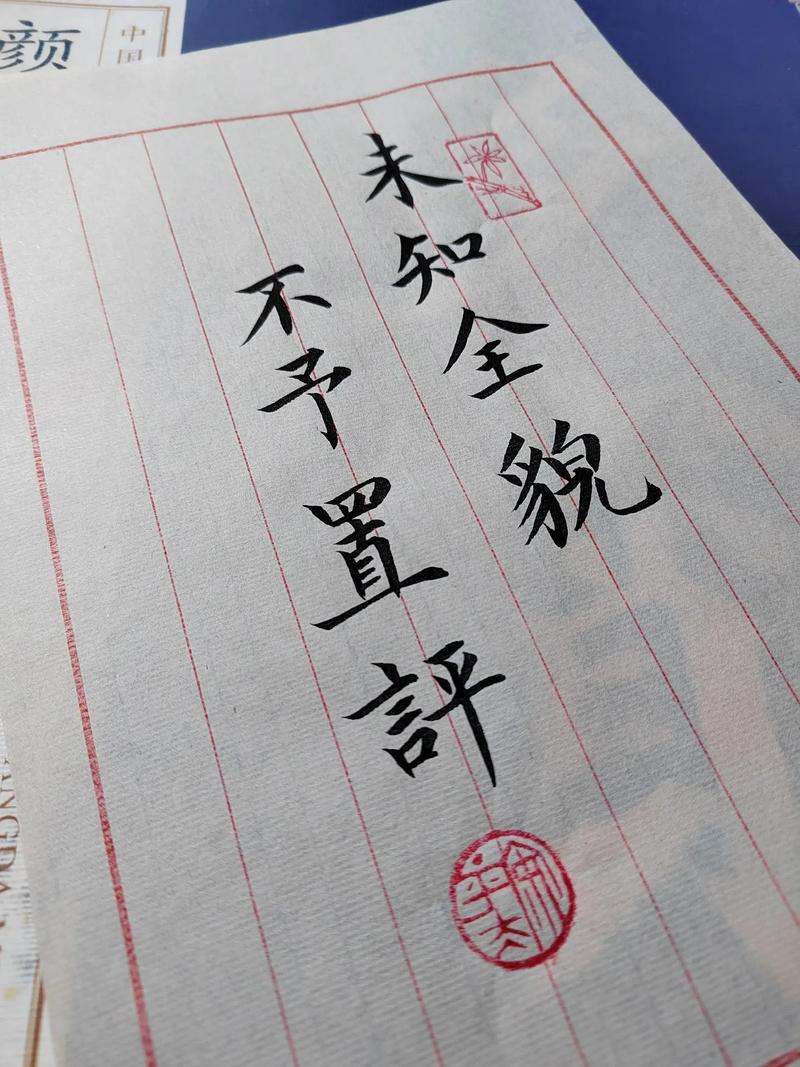 未知全貌
不予置評
颜
中国